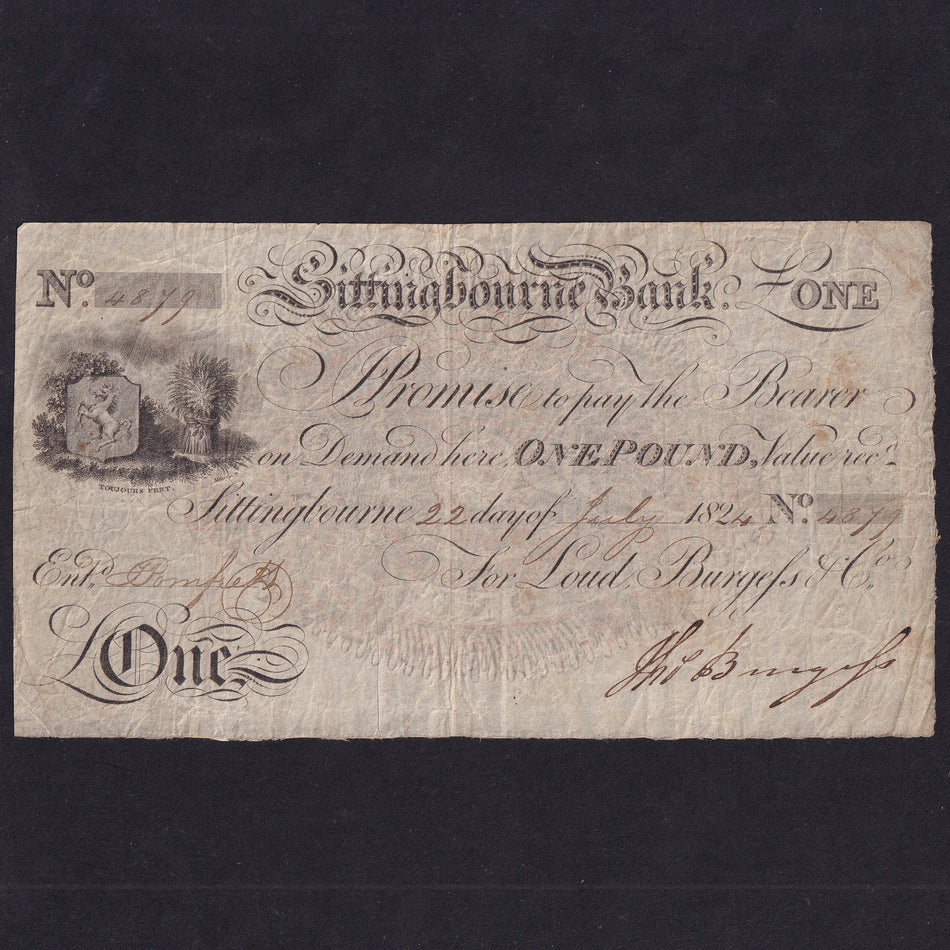 No. 4879 Sittingbourne Bank. £ONE
I Promise to pay the Bearer
on Demand here, ONE POUND, Value recd.
TOUJOURS PRET.
Sittingbourne 22 day of July 1824 No. 4879
Entd.
For Loud, Burgeſs & Co.
£One
Thos Burgeſs